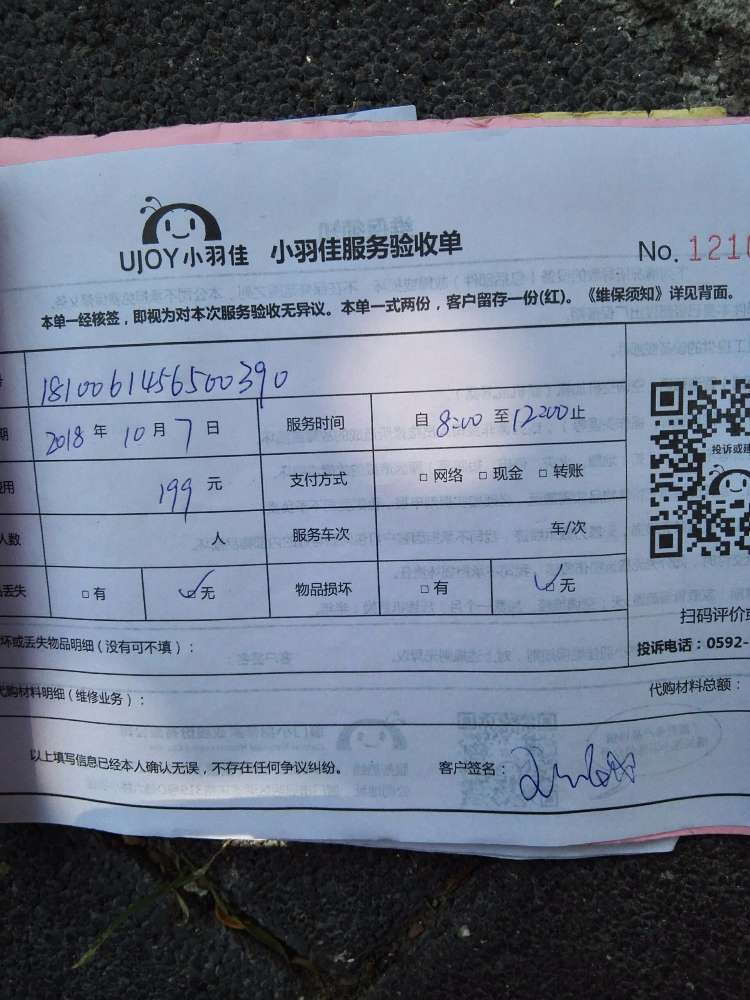 UJOY小羽佳 小羽佳服务验收单
No. 121
本单一经核签，即视为对本次服务验收无异议。本单一式两份，客户留存一份(红)。《维保须知》详见背面。
1810061456500390
期 2018 年 10 月 7 日 服务时间 自 8:00 至 12:00 止
费用 199 元 支付方式 □ 网络 □ 现金 □ 转账
人数 人 服务车次 车/次
品丢失 □ 有 ☑ 无 物品损坏 □ 有 ☑ 无
投诉或建
扫码评价或
投诉电话：0592-
坏或丢失物品明细（没有可不填）：
代购材料明细（维修业务）： 代购材料总额：
以上填写信息已经本人确认无误，不存在任何争议纠纷。 客户签名：